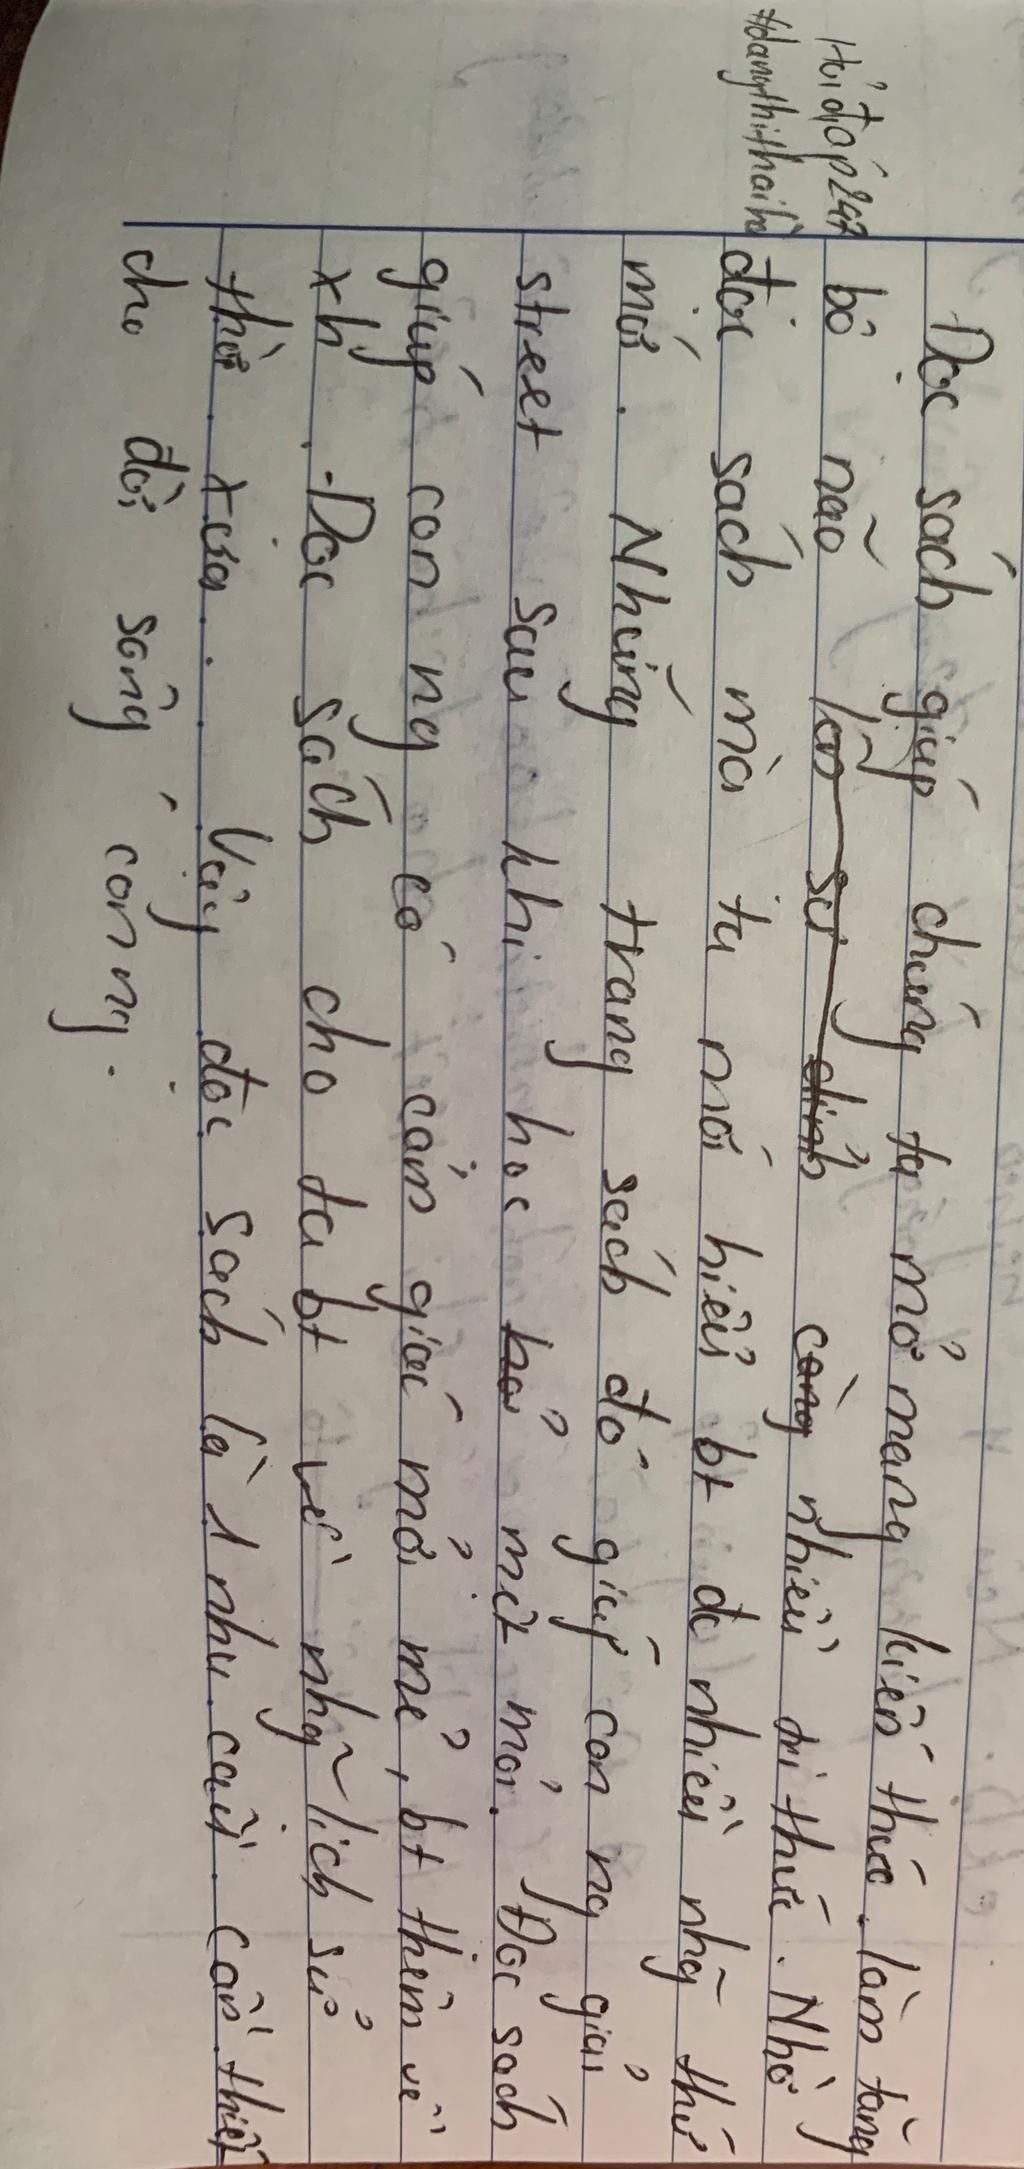 Hỏi đáp 247
#dangthithaiha
Đọc sách giúp chúng ta mở mang kiến thức. làm tăng
bộ não càng nhiều tri thức. Nhờ
đọc sách mà ta mới hiểu bt đc nhiều nhg~ thứ
mới. Những trang sách đó giúp con ng giải
street sau khi học hỏi mệt mỏi. Đọc sách
giúp con ng có cảm giác mới mẻ, bt thêm về
xh. Đọc sách cho ta bt về nhg~ lịch sử
thời xưa. Vậy đọc sách là 1 nhu cầu cần thiết
cho đời sống con ng.